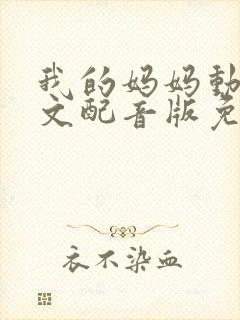 我的妈妈動
文配音版免
衣不染血